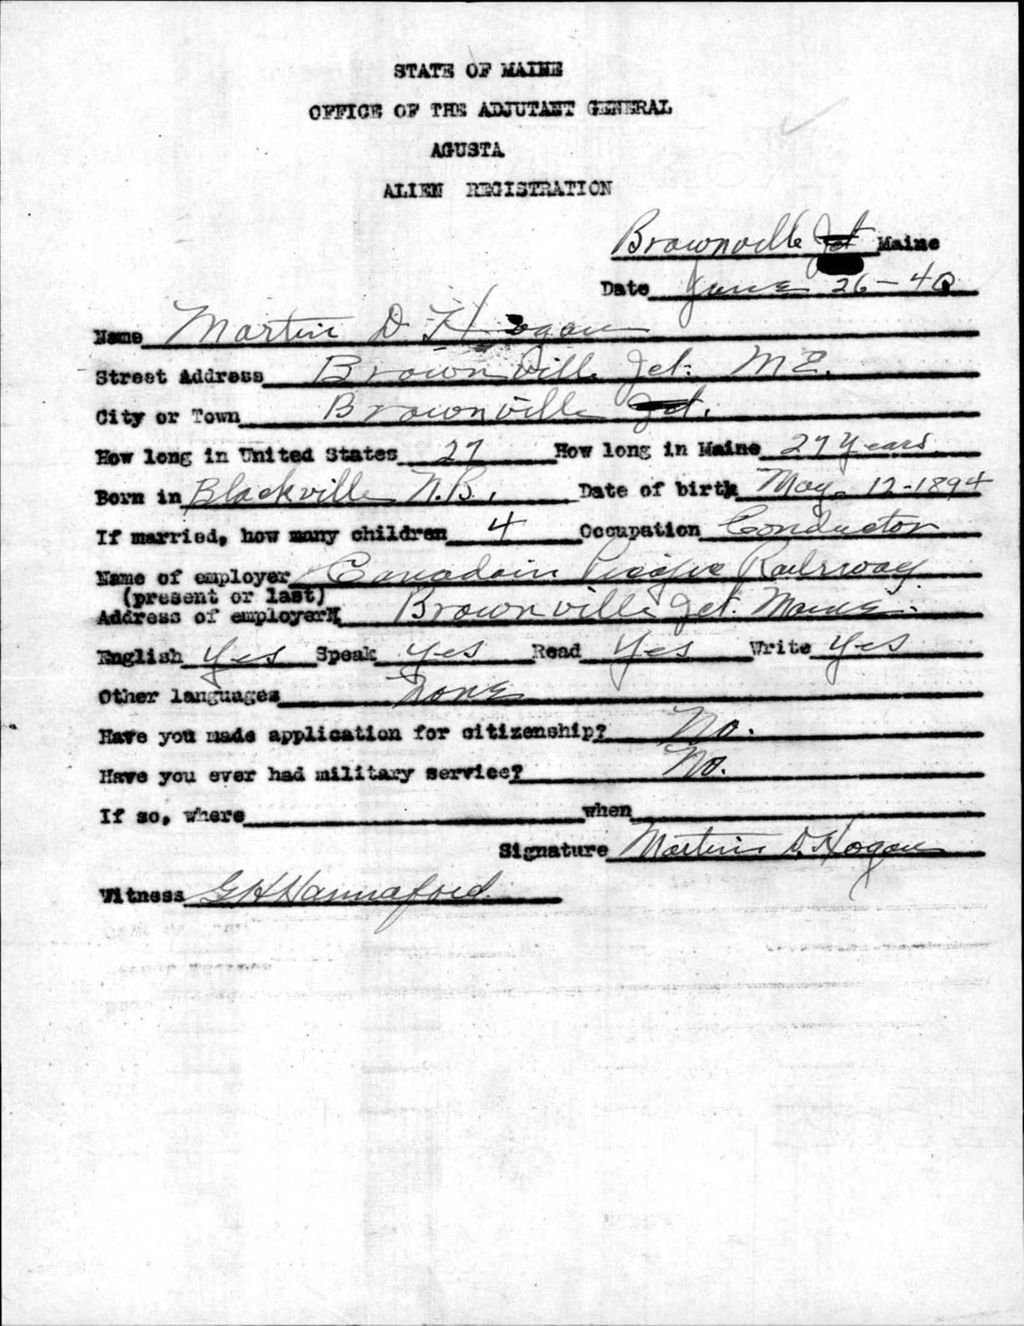 STATE OF MAINE
OFFICE OF THE ADJUTANT GENERAL
AGUSTA
ALIEN REGISTRATION
Brownville Jct Maine
Date June 26-40
Name Martin D Hogan
Street Address Brownville Jct. ME.
City or Town Brownville Jct.
How long in United States 27 How long in Maine 27 Years.
Born in Blackville N.B. Date of birth May. 12-1894
If married, how many children 4 Occupation Conductor
Name of employer Canadain Pacific Railrway
(present or last)
Address of employer Brownville Jct. Maine.
English Yes Speak Yes Read Yes Write Yes
Other languages None
Have you made application for citizenship? No.
Have you ever had military service? No.
If so, where when
Signature Martin D. Hogan
Witness G H Hannaford.